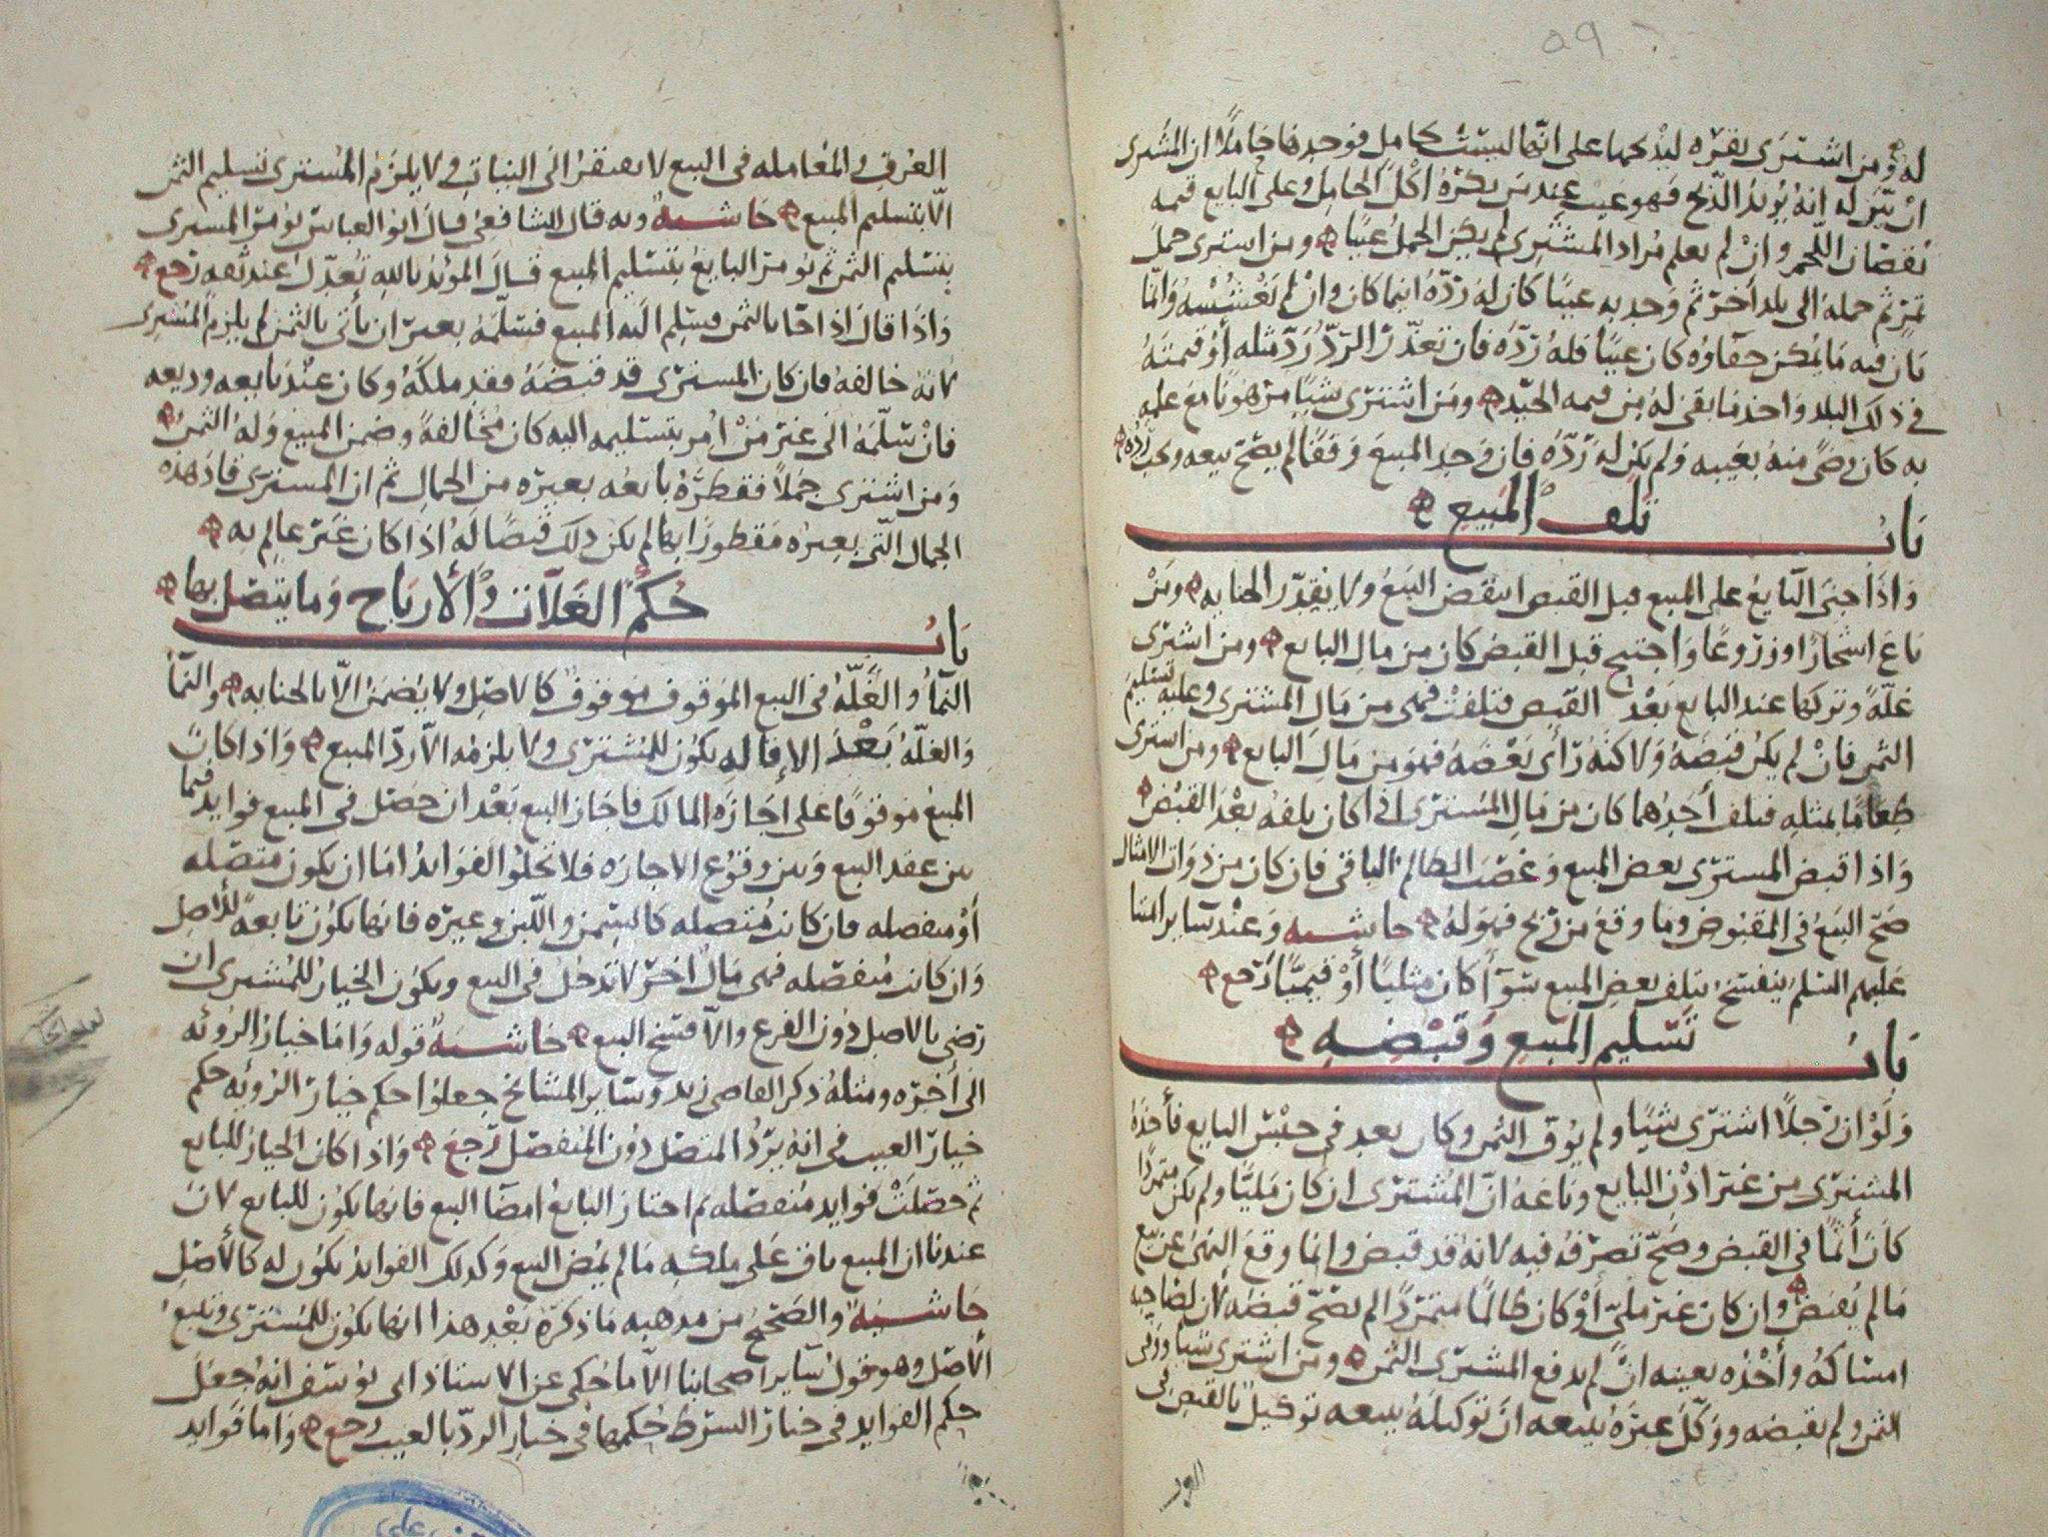 ٥٩
له ومن اشترى بقره ليذبحها على انها ليست بحامل فوجدها حاملا ان المشترى
ان بين له انه يريد الذبح فهو عيب عند من يكره اكل الحامل وعلى البايع قيمه
نقصان اللحم وان لم يعلم مراد المشترى لم يكن الحمل عيبا ومن اشترى حمل
تمر ثم حمله الى بلد آخر ثم وجد به عيبا كان له رده اينما كان وان لم يغششه وانما
بان فيه ما يمكن خفاؤه كان عيبا فله رده فان تعذر الرد رد مثله أو قيمته
في ذلك البلد واخذ ما بقى له من قيمه الجيد ومن اشترى شيا مرهونا مع علمه
به كان رضى منه بعيبه ولم يكن له رده فان وجد المبيع وقفا لم يصح بيعه ويجب رده
باب تلف المبيع
واذا جنى البايع على المبيع قبل القبض انتقض البيع ولا يتقدر الجنايه ومن
باع اشجارا او زروعا واجتيح قبل القبض كان من مال البايع ومن اشترى
غلة وتركها عند البايع بعد القبض فتلفت فهى من مال المشترى وعليه تسليم
الثمن فان لم يكن قبضه ولاكنه رأى بعضه فهو من مال البايع ومن اشترى
طعاما بمثله فتلف أحدهما كان من مال المشترى اذا كان تلفه بعد القبض
واذا قبض المشترى بعض المبيع وغصب الظالم الباقى فان كان من ذوات الامثال
صح البيع فى المقبوض وما وقع من ربح فهو له حاشيه وعند سائر المشا
عليهم السلم ينفسخ بتلف بعض المبيع سوآ أكان مثليا أو قيميا رجع
باب تسليم المبيع وقبضه
ولو ان رجلا اشترى شيا ولم يوف الثمن وكان بعد في حبس البايع فأخذه
المشترى من غير اذن البايع وباعه ان المشترى ان كان مليا ولم يكن متمردا
كان آثما في القبض وصح تصرفه فيه لانه قد قبض وانما وقع النهى عن بيع
ما لم يقبض وان كان غير ملى أو كان ظالما متمردا لم يصح قبضه لان لصاحبه
امساكه وأخذه بعينه ان لم يدفع المشترى الثمن ومن اشترى شيا ووفى
الثمن ولم يقبضه ووكل غيره ببيعه ان توكيله ببيعه توكيل بالقبض في
العرف والمعامله فى البيع لا يفتقر الى النيات ولا يلزم المشترى تسليم الثمن
الا بتسليم المبيع حاشيه وبه قال الشافعى قال ابو العباس يؤمر المشترى
بتسليم الثمن ثم يؤمر البايع بتسليم المبيع قال المؤيد بالله يعدل عند ثقه رجع
واذا قال اذا جا بالثمن فسلم اليه المبيع فسلمه بغير ان يأتى بالثمن لم يلزم المشترى
لانه خالفه فان كان المشترى قد قبضه فقد ملكه وكان عند بايعه وديعه
فان سلمه الى غير من امر بتسليمه اليه كان مخالفة وضمن المبيع وله الثمن
ومن اشترى جملا فقطره بايعه بعيره من الجمال ثم ان المشترى قاد هذه
الجمال التى بعيره مقطورا بها لم يكن ذلك قبضا له اذا كان غير عالم به
باب حكم الغلات والأرباح وما يتصل بها
النمآ والغله فى البيع الموقوف موقوف كالاصل ولا يضمن الا بالجنايه والنمآ
والغله بعد الاقاله يكون للمشترى ولا يلزمه الا رد المبيع واذا كان
المبيع موقوفا على اجازه المالك فاجاز البيع بعد ان حصل فى المبيع فوايد فيما
بين عقد البيع وبين وقوع الاجازه فلا تخلوا الفوايد اما ان يكون متصله
أو منفصله فان كانت متصله كالسمن واللبن وغيره فانها يكون تابعة للأصل
وان كانت منفصله فهى مال اخر لا تدخل فى البيع ويكون الخيار للمشترى ان
رضى بالاصل دون الفرع والا فسخ البيع حاشيه قوله واما خيار الرؤيه
الى أخره ومثله ذكر القاضى زيد وساير المشائخ جعلوا حكم خيار الرؤيه حكم
خيار العيب فى انه يرد المتصل دون المنفصل رجع واذا كان الخيار للبايع
ثم حصلت فوايد منفصله ثم اختار البايع امضآ البيع فانها يكون للبايع لان
عندنا ان المبيع باق على ملكه ما لم يمض البيع وكذلك الفوايد يكون له كالأصل
حاشيه والصحيح من مذهبه ما ذكره بعد هذا انها يكون للمشترى وتتبع
الأصل وهو قول ساير اصحابنا الا ما حكى عن الاستاذ ابى يوسف انه جعل
حكم الفوايد فى خيار الشرط حكمها فى خيار الرد بالعيب رجع واما فوايد